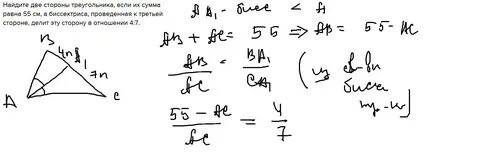 Найдите две стороны треугольника, если их сумма
равна 55 см, а биссектриса, проведенная к третьей
стороне, делит эту сторону в отношении 4:7.
AA₁ - бисс < A
AB + AC = 55 ⇒ AB = 55 - AC
B
4x A₁
7x
A
C
AB/AC = BA₁/CA₁ (из св-ва
бисс
тр-ка)
55 - AC/AC = 4/7